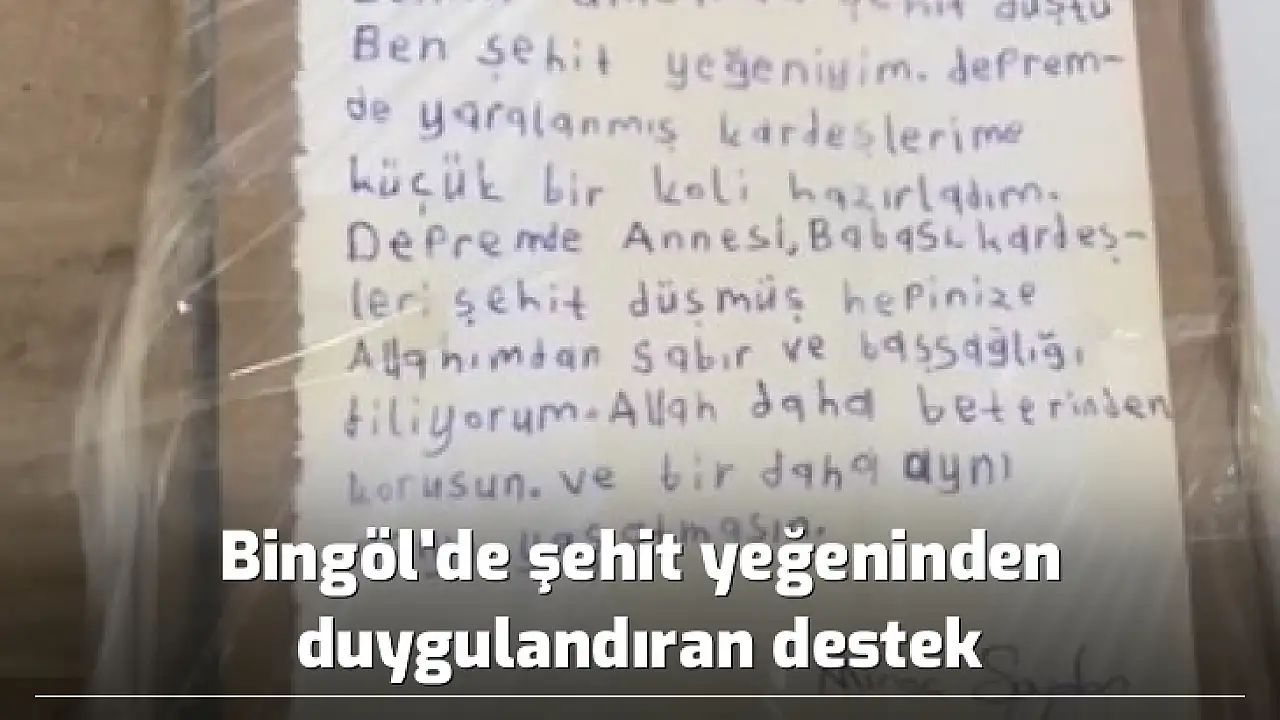 şehit düştü
Ben şehit yeğeniyim. deprem-
de yaralanmış kardeşlerime
küçük bir koli hazırladım.
Depremde Annesi, Babası kardeş-
leri şehit düşmüş hepinize
Allahımdan sabır ve başsağlığı
diliyorum. Allah daha beterinden
korusun. ve bir daha aynı
yaşatmasın.
Bingöl'de şehit yeğeninden
duygulandıran destek